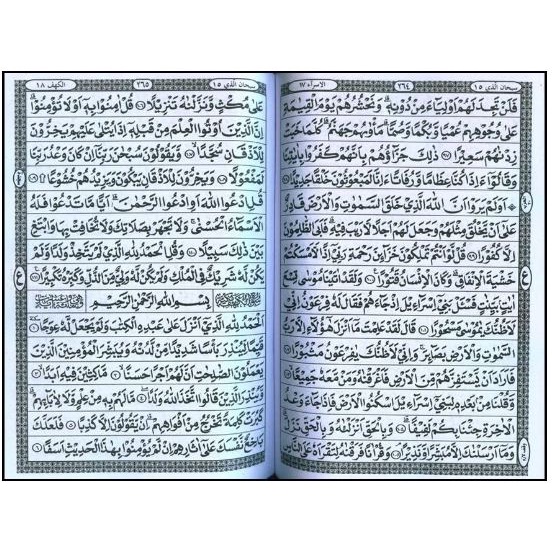 سبحان الذي ١٥ ٢٦٤ الاسراء ١٧
فَلَنْ تَجِدَ لَهُمْ اَوْلِيَآءَ مِنْ دُوْنِهٖ ؕ وَنَحْشُرُهُمْ يَوْمَ الْقِيٰمَةِ
عَلٰى وُجُوْهِهِمْ عُمْيًا وَّبُكْمًا وَّصُمًّا ؕ مَاْوٰىهُمْ جَهَنَّمُ ؕ كُلَّمَا خَبَتْ
زِدْنٰهُمْ سَعِيْرًا ۝٩٧ ذٰلِكَ جَزَآؤُهُمْ بِاَنَّهُمْ كَفَرُوْا بِاٰيٰتِنَا
وَقَالُوْٓا ءَاِذَا كُنَّا عِظَامًا وَّرُفَاتًا ءَاِنَّا لَمَبْعُوْثُوْنَ خَلْقًا جَدِيْدًا ۝٩٨
اَوَلَمْ يَرَوْا اَنَّ اللّٰهَ الَّذِيْ خَلَقَ السَّمٰوٰتِ وَالْاَرْضَ قَادِرٌ
عَلٰٓى اَنْ يَّخْلُقَ مِثْلَهُمْ وَجَعَلَ لَهُمْ اَجَلًا لَّا رَيْبَ فِيْهِ ؕ فَاَبَى الظّٰلِمُوْنَ
اِلَّا كُفُوْرًا ۝٩٩ قُلْ لَّوْ اَنْتُمْ تَمْلِكُوْنَ خَزَآئِنَ رَحْمَةِ رَبِّيْٓ اِذًا لَّاَمْسَكْتُمْ
خَشْيَةَ الْاِنْفَاقِ ؕ وَكَانَ الْاِنْسَانُ قَتُوْرًا ۝١٠٠ وَلَقَدْ اٰتَيْنَا مُوْسٰى تِسْعَ
اٰيٰتٍۭ بَيِّنٰتٍ فَسْـَٔلْ بَنِيْٓ اِسْرَآءِيْلَ اِذْ جَآءَهُمْ فَقَالَ لَهٗ فِرْعَوْنُ اِنِّيْ
لَاَظُنُّكَ يٰمُوْسٰى مَسْحُوْرًا ۝١٠١ قَالَ لَقَدْ عَلِمْتَ مَآ اَنْزَلَ هٰٓؤُلَآءِ اِلَّا رَبُّ
السَّمٰوٰتِ وَالْاَرْضِ بَصَآئِرَ ۚ وَاِنِّيْ لَاَظُنُّكَ يٰفِرْعَوْنُ مَثْبُوْرًا ۝١٠٢
فَاَرَادَ اَنْ يَّسْتَفِزَّهُمْ مِّنَ الْاَرْضِ فَاَغْرَقْنٰهُ وَمَنْ مَّعَهٗ جَمِيْعًا ۝١٠٣
وَّقُلْنَا مِنْۢ بَعْدِهٖ لِبَنِيْٓ اِسْرَآءِيْلَ اسْكُنُوا الْاَرْضَ فَاِذَا جَآءَ وَعْدُ
الْاٰخِرَةِ جِئْنَا بِكُمْ لَفِيْفًا ۝١٠٤ وَبِالْحَقِّ اَنْزَلْنٰهُ وَبِالْحَقِّ نَزَلَ ؕ
وَمَآ اَرْسَلْنٰكَ اِلَّا مُبَشِّرًا وَّنَذِيْرًا ۝١٠٥ وَقُرْاٰنًا فَرَقْنٰهُ لِتَقْرَاَهٗ عَلَى النَّاسِ
سبحان الذي ١٥ ٢٦٥ الكهف ١٨
عَلٰى مُكْثٍ وَّنَزَّلْنٰهُ تَنْزِيْلًا ۝١٠٦ قُلْ اٰمِنُوْا بِهٖٓ اَوْ لَا تُؤْمِنُوْا ؕ
اِنَّ الَّذِيْنَ اُوْتُوا الْعِلْمَ مِنْ قَبْلِهٖٓ اِذَا يُتْلٰى عَلَيْهِمْ يَخِرُّوْنَ
لِلْاَذْقَانِ سُجَّدًا ۝١٠٧ وَّيَقُوْلُوْنَ سُبْحٰنَ رَبِّنَآ اِنْ كَانَ وَعْدُ رَبِّنَا
لَمَفْعُوْلًا ۝١٠٨ وَيَخِرُّوْنَ لِلْاَذْقَانِ يَبْكُوْنَ وَيَزِيْدُهُمْ خُشُوْعًا ۝١٠٩
قُلِ ادْعُوا اللّٰهَ اَوِ ادْعُوا الرَّحْمٰنَ ؕ اَيًّا مَّا تَدْعُوْا فَلَهُ
الْاَسْمَآءُ الْحُسْنٰى ۚ وَلَا تَجْهَرْ بِصَلَاتِكَ وَلَا تُخَافِتْ بِهَا وَابْتَغِ
بَيْنَ ذٰلِكَ سَبِيْلًا ۝١١٠ وَقُلِ الْحَمْدُ لِلّٰهِ الَّذِيْ لَمْ يَتَّخِذْ وَلَدًا وَّلَمْ
يَكُنْ لَّهٗ شَرِيْكٌ فِي الْمُلْكِ وَلَمْ يَكُنْ لَّهٗ وَلِيٌّ مِّنَ الذُّلِّ وَكَبِّرْهُ تَكْبِيْرًا ۝١١١
بِسْمِ اللّٰهِ الرَّحْمٰنِ الرَّحِيْمِ
اَلْحَمْدُ لِلّٰهِ الَّذِيْٓ اَنْزَلَ عَلٰى عَبْدِهِ الْكِتٰبَ وَلَمْ يَجْعَلْ لَّهٗ عِوَجًا ۝١
قَيِّمًا لِّيُنْذِرَ بَاْسًا شَدِيْدًا مِّنْ لَّدُنْهُ وَيُبَشِّرَ الْمُؤْمِنِيْنَ الَّذِيْنَ
يَعْمَلُوْنَ الصّٰلِحٰتِ اَنَّ لَهُمْ اَجْرًا حَسَنًا ۝٢ مَّاكِثِيْنَ فِيْهِ اَبَدًا ۝٣
وَّيُنْذِرَ الَّذِيْنَ قَالُوا اتَّخَذَ اللّٰهُ وَلَدًا ۝٤ مَا لَهُمْ بِهٖ مِنْ عِلْمٍ وَّلَا لِاٰبَآئِهِمْ ؕ
كَبُرَتْ كَلِمَةً تَخْرُجُ مِنْ اَفْوَاهِهِمْ ؕ اِنْ يَّقُوْلُوْنَ اِلَّا كَذِبًا ۝٥ فَلَعَلَّكَ
بَاخِعٌ نَّفْسَكَ عَلٰٓى اٰثَارِهِمْ اِنْ لَّمْ يُؤْمِنُوْا بِهٰذَا الْحَدِيْثِ اَسَفًا ۝٦